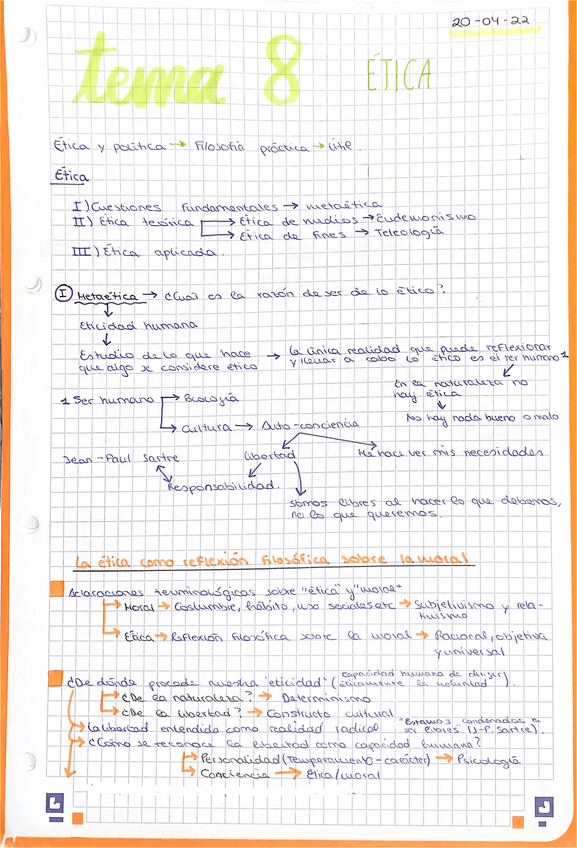 20-04-22
tema 8 ÉTICA
Ética y política → Filosofía práctica → útil.
Ética
I) Cuestiones fundamentales → metaética
II) Ética teórica → Ética de medios → Eudemonismo
→ Ética de fines → Teleología
III) Ética aplicada.
I Metaética → ¿Cuál es la razón de ser de lo ético?
↓
Eticidad humana
↓
Estudio de lo que hace → La única realidad que puede reflexionar
que algo se considere ético y llevar a cabo lo ético es el ser humano 1
En la naturaleza no
hay ética
↓
1 Ser humano → Biología No hay nada bueno o malo
→ Cultura → Auto-conciencia
Jean-Paul Sartre libertad Me hace ver mis necesidades
Responsabilidad.
Somos libres al hacer lo que debemos,
no lo que queremos.
La ética como reflexión filosófica sobre la moral
Aclaraciones terminológicas sobre "ética" y "moral"
→ Moral → Costumbre, hábito, uso sociales etc → Subjetivismo y rela-
tivismo
→ Ética → Reflexión filosófica sobre la moral → Racional, objetiva
y universal
¿De dónde procede nuestra "eticidad" (capacidad humana de dirigir
éticamente la voluntad).
→ ¿De la naturaleza? → Determinismo
→ ¿De la libertad? → Constructo cultural
→ La libertad entendida como realidad radical "Estamos condenados a
ser libres" (J-P. Sartre).
→ ¿Cómo se reconoce la libertad como capacidad humana?
→ Personalidad (Temperamento-carácter) → Psicología
→ Conciencia → Ética/moral